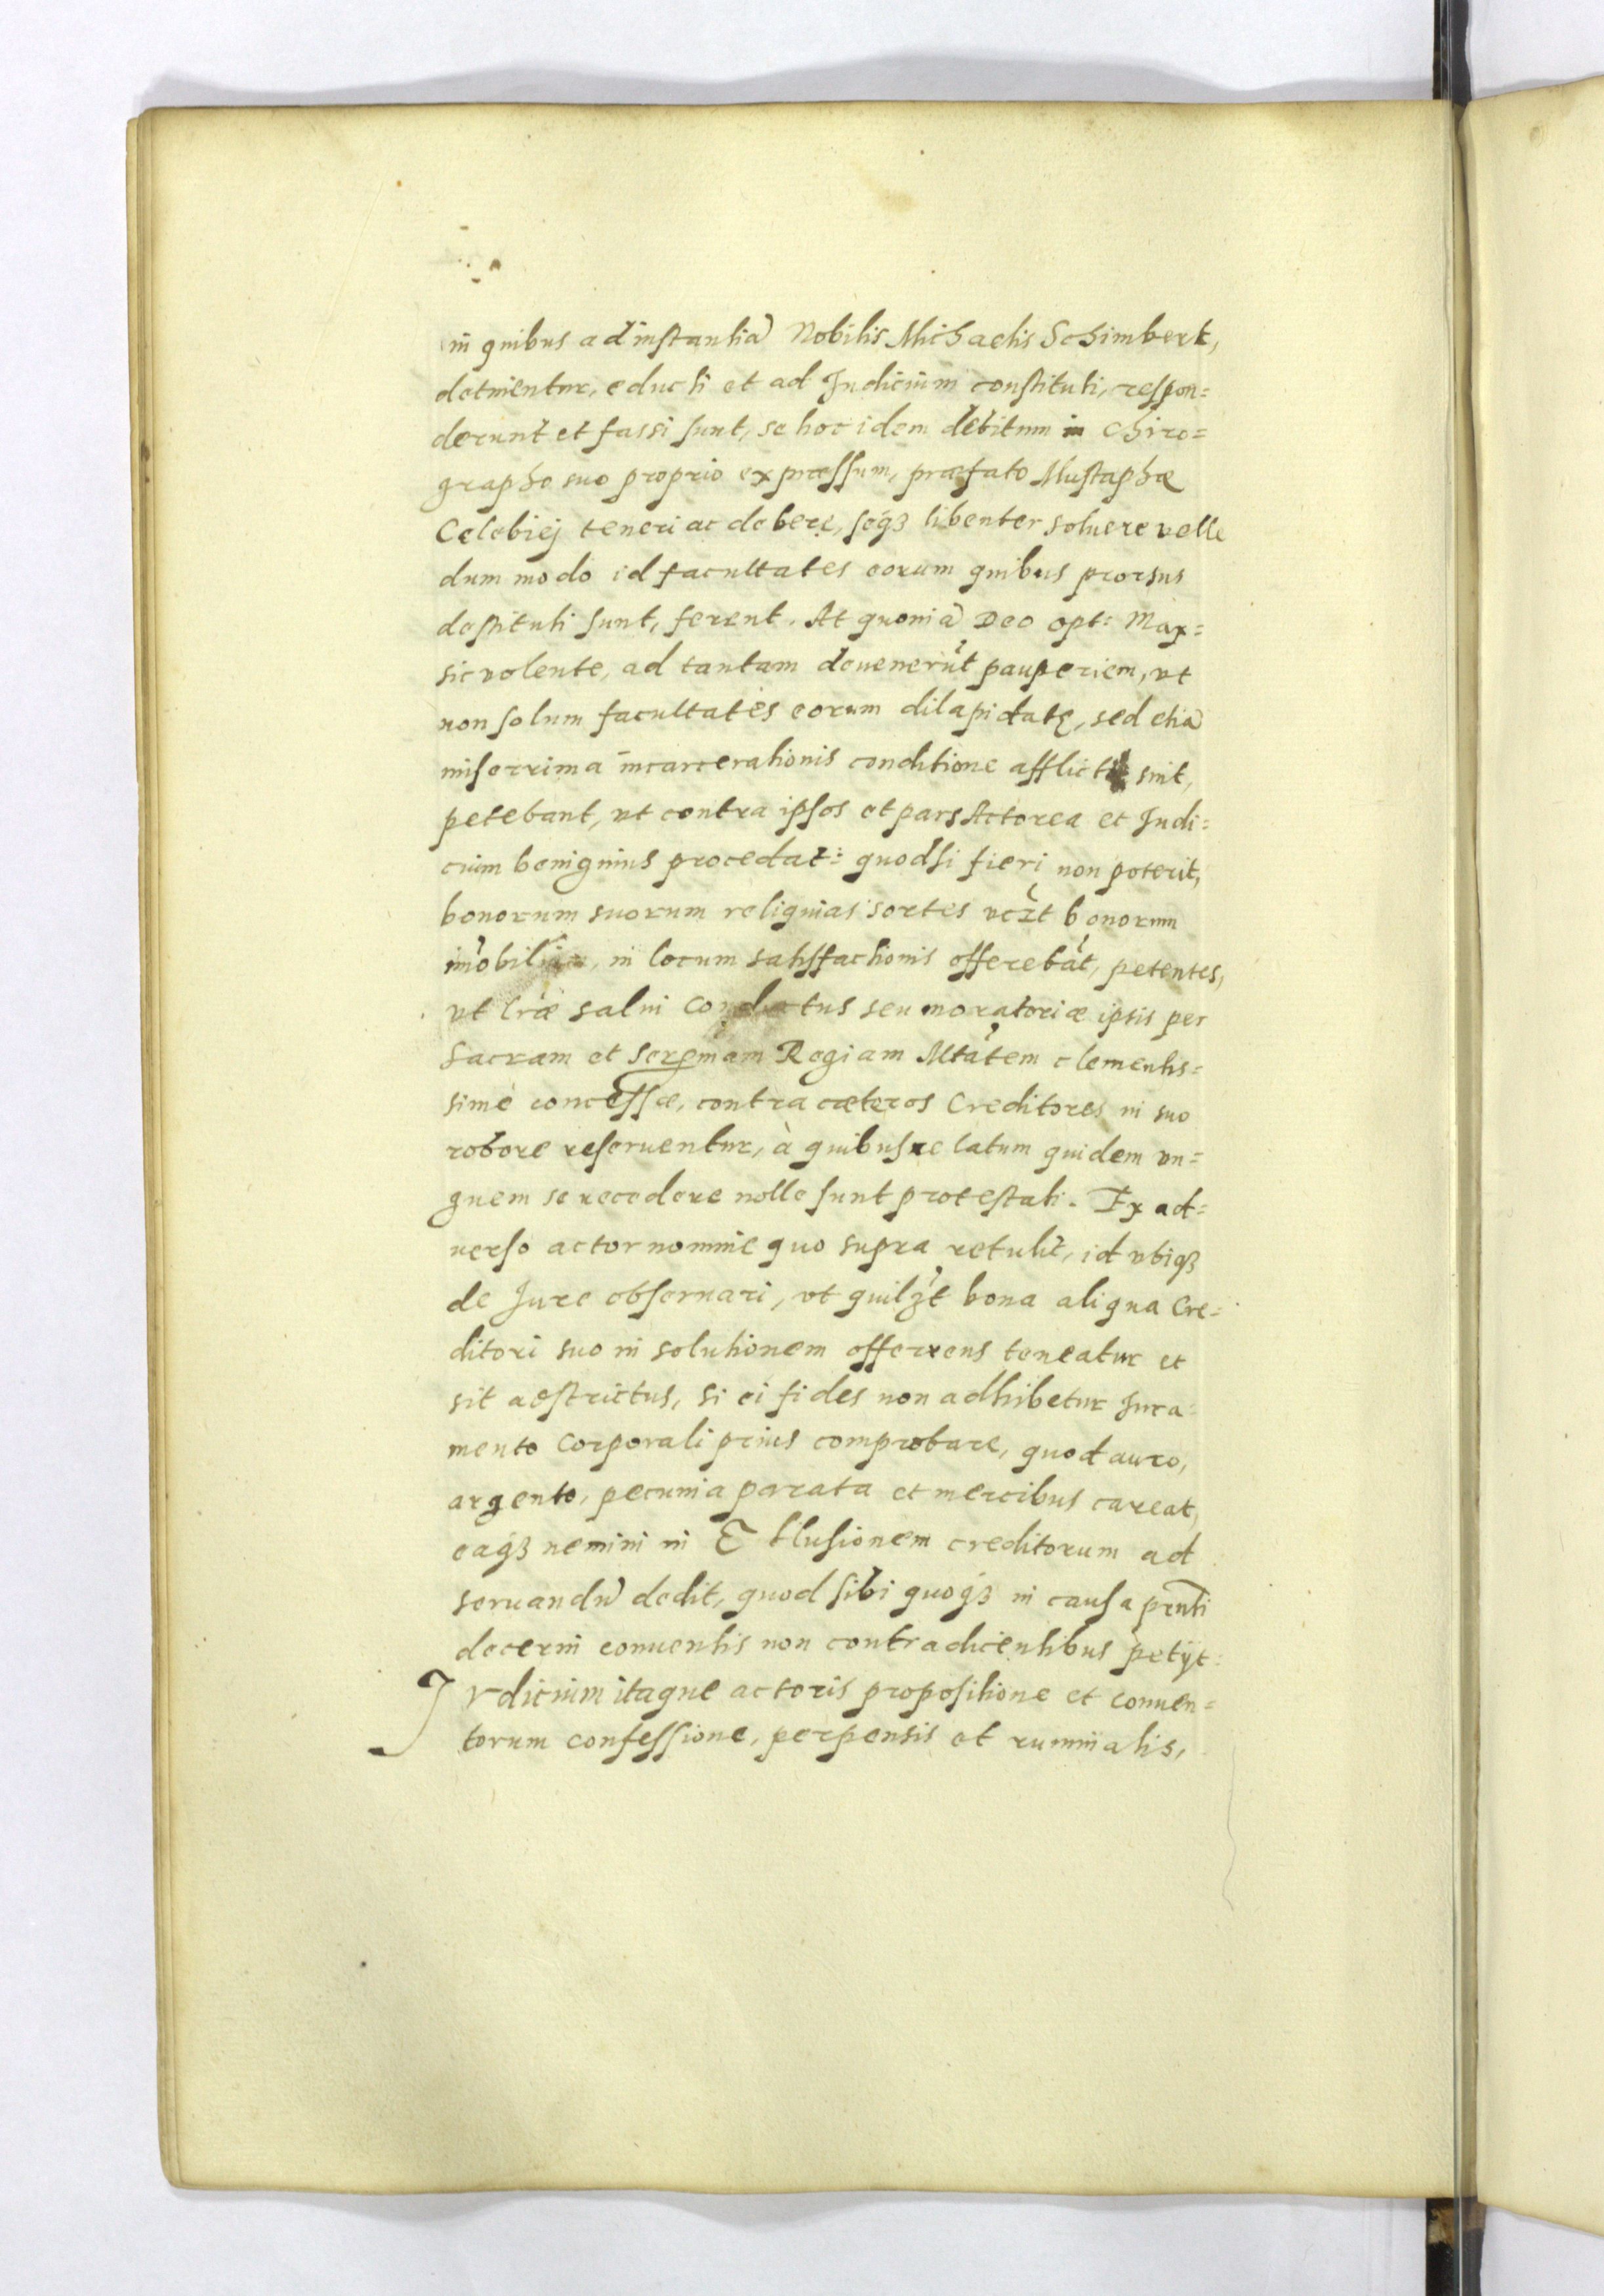 in quibus ad instantiã Nobilis Michaelis Schimbert,
detinentur, educti et ad Judicium constituti, respon=
derunt et fassi sunt, se hoc idem debitum in Chiro=
grapho suo proprio expræssum, præfato Mustaphæ
Celebiej teneri ac debere, seqꝫ libenter soluere velle
dum modo id facultates eorum quibus prorsus
destituti sunt, ferent. At quoniã Deo opt: Max=
sic volente, ad tantam deuenerũt pauperiem, vt
non solum facultates eorum dilapidatę, sed etiã
miserrima incarcerationis conditione afflicti sint,
petebant, vt contra ipsos et pars Actorea et Judi=
cium benignius procedat: quodsi fieri non poterit,
bonorum suorum reliquias sortes vczt bonorum
im̃obilium, in locum satisfactionis offerebãt, petentes,
vt lræ salui Conductus seu moratoriæ ipsis per
Sacram et Sereṁam Regiam Mtãtem clementis=
simè concessæ, contra cæteros Creditores in suo
robore reseruentur, à quibus ne latum quidem vn=
guem se recedere nolle sunt protestati. Ex ad=
uerso actor nomine quo supra retulit, id vbiqꝫ
de Jure obseruari, vt quilzt bona aliqua Cre=
ditori suo in solutionem offerrens teneatur et
sit adstrictus, si ei fides non adhibetur Jura=
mento Corporali prius comprobare, quod auro,
argento, pecunia parata et mercibus careat,
eaqꝫ nemini in Ellusionem creditorum ad
seruandũ dedit, quod sibi quoqꝫ in causa prñti
decerni conuentis non contradicentibus petijt:
Jvdicium itaque actoris propositione et conuen=
torum confessione, perpensis et ruminatis,